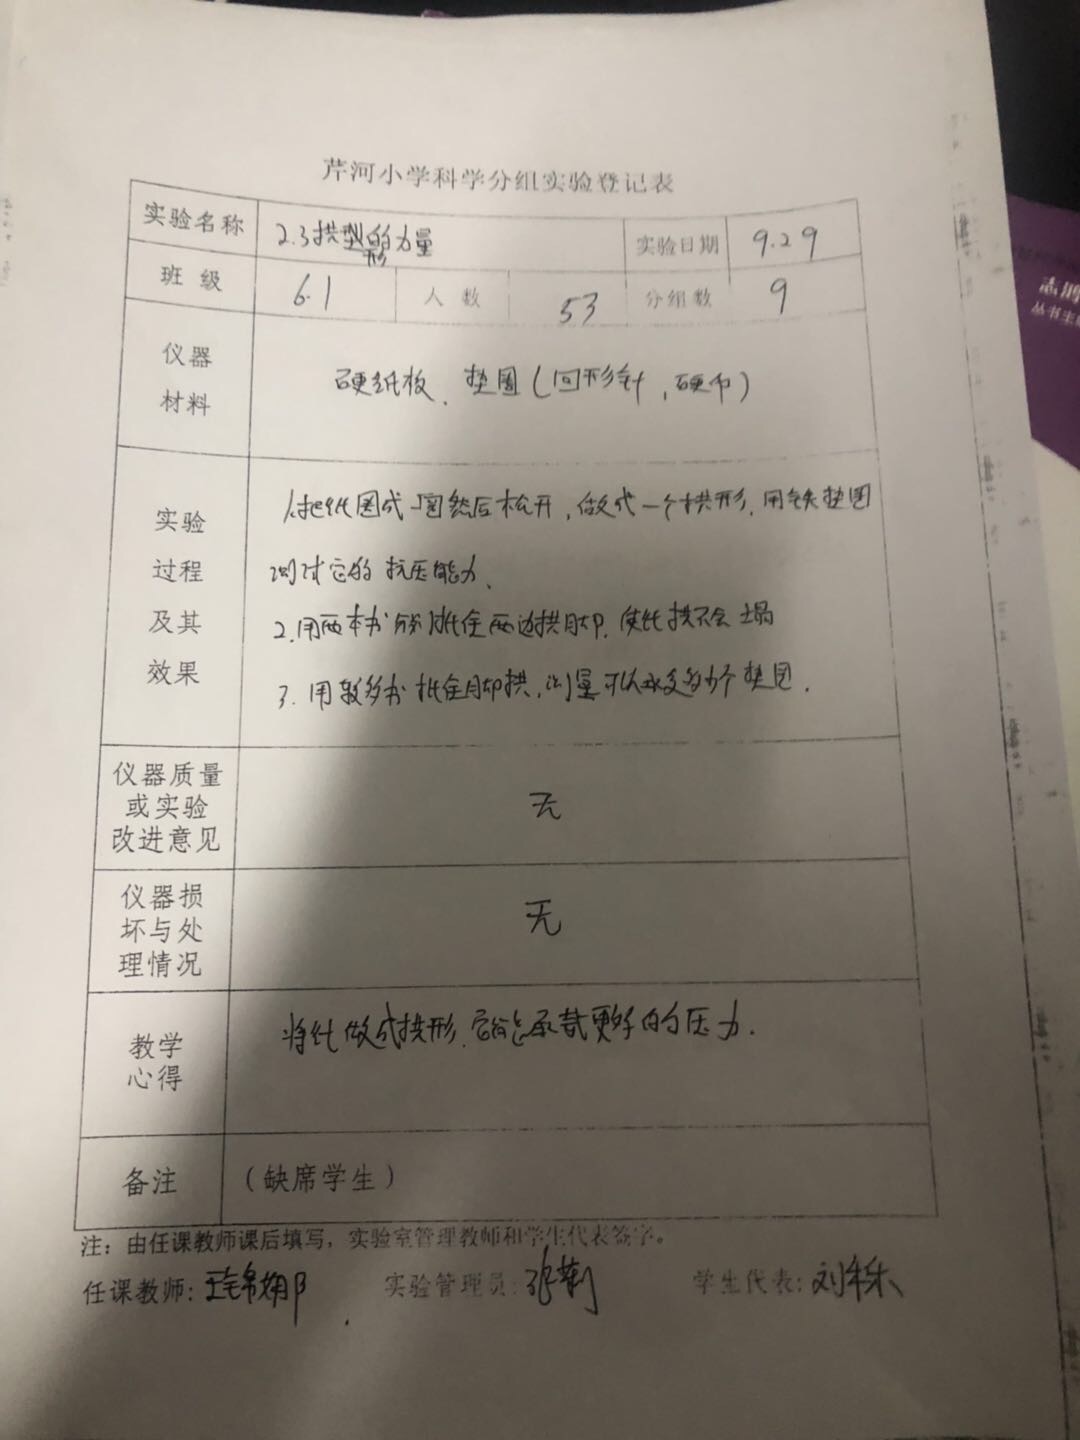 芹河小学科学分组实验登记表
实验名称 2.3拱形的力量 实验日期 9.29
班级 6.1 人数 53 分组数 9
仪器
材料
硬纸板、垫圈(回形针,硬币)
实验
过程
及其
效果
1.把纸围成一圈然后松开,做成一个拱形,用铁垫圈
测试它的抗压能力、
2.用两本书分别抵住两边拱脚,使纸拱不会塌
3.用较多书抵住脚拱,测量可以承受多少个垫圈.
仪器质量
或实验
改进意见
无
仪器损
坏与处
理情况
无
教学
心得
将纸做成拱形,它能承载更好的压力.
备注 (缺席学生)
注:由任课教师课后填写,实验室管理教师和学生代表签字。
任课教师: 实验管理员: 学生代表:刘
志鹏
丛书主